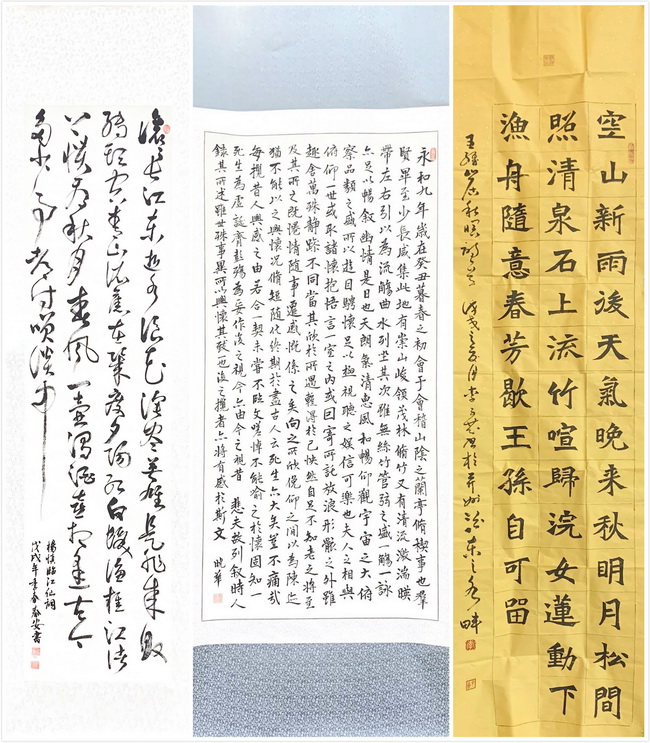 滾滾長江東逝水浪花淘盡英雄是非成敗
轉頭空青山依舊在幾度夕陽紅白髮漁樵江渚
上慣看秋月春風一壺濁酒喜相逢古今
多少事都付笑談中
楊慎臨江仙詞
戊戌年季春泰安書
永和九年歲在癸丑暮春之初會于會稽山陰之蘭亭脩禊事也羣
賢畢至少長咸集此地有崇山峻領茂林脩竹又有清流激湍暎
帶左右引以為流觴曲水列坐其次雖無絲竹管弦之盛一觴一詠
亦足以暢叙幽情是日也天朗氣清惠風和暢仰觀宇宙之大俯
察品類之盛所以遊目騁懷足以極視聽之娛信可樂也夫人之相與
俯仰一世或取諸懷抱悟言一室之內或因寄所託放浪形骸之外雖
趣舍萬殊靜躁不同當其欣於所遇暫得於己怏然自足不知老之將至
及其所之既惓情隨事遷感慨係之矣向之所欣俛仰之間以為陳迹
猶不能以之興懷況脩短隨化終期於盡古人云死生亦大矣豈不痛哉
每攬昔人興感之由若合一契未嘗不臨文嗟悼不能喻之於懷固知一
死生為虛誕齊彭殤為妄作後之視今亦由今之視昔悲夫故列叙時人
錄其所述雖世殊事異所以興懷其致一也後之攬者亦將有感於斯文 曉華
空山新雨後天氣晚來秋明月松間
照清泉石上流竹喧歸浣女蓮動下
漁舟隨意春芳歇王孫自可留
王維山居秋暝詩一首 戊戌之